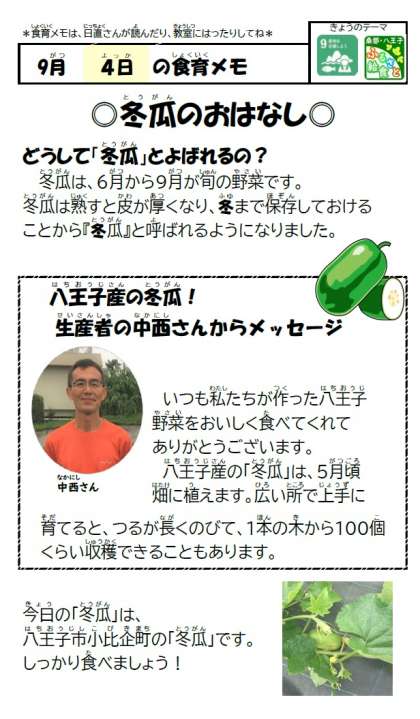 *食育メモは、日直さんが読んだり、教室にはったりしてね*
きょうのテーマ
9月 4日 の食育メモ
◎冬瓜のおはなし◎
どうして「冬瓜」とよばれるの？
冬瓜は、6月から9月が旬の野菜です。
冬瓜は熟すと皮が厚くなり、冬まで保存しておける
ことから『冬瓜』と呼ばれるようになりました。
八王子産の冬瓜！
生産者の中西さんからメッセージ
いつも私たちが作った八王子
野菜をおいしく食べてくれて
ありがとうございます。
八王子産の「冬瓜」は、5月頃
畑に植えます。広い所で上手に
育てると、つるが長くのびて、1本の木から100個
くらい収穫できることもあります。
中西さん
今日の「冬瓜」は、
八王子市小比企町の「冬瓜」です。
しっかり食べましょう！